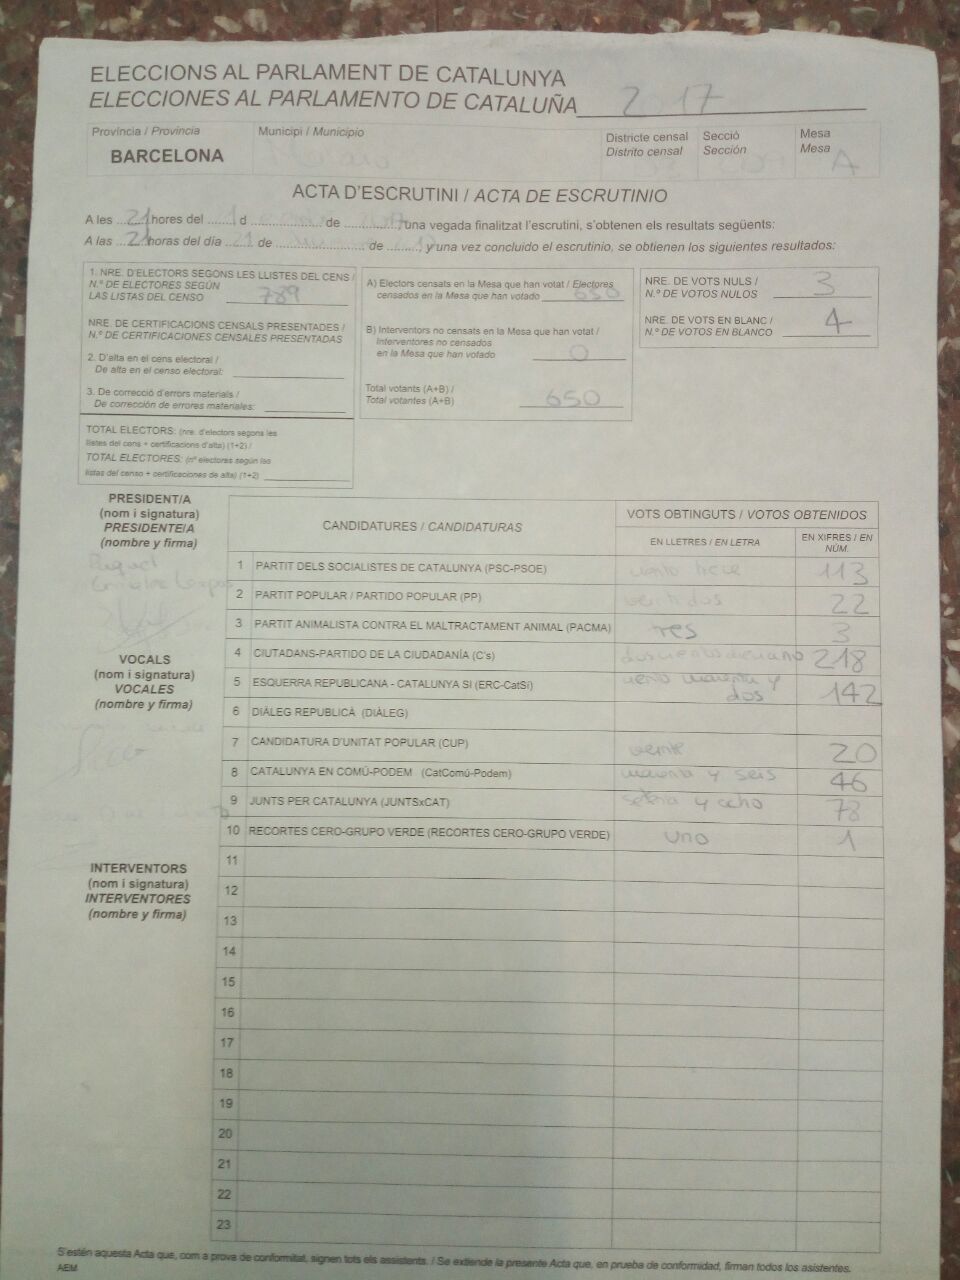 ELECCIONS AL PARLAMENT DE CATALUNYA
ELECCIONES AL PARLAMENTO DE CATALUÑA 2017
Província / Provincia
BARCELONA
Municipi / Municipio
Districte censal
Distrito censal
Secció
Sección
Mesa
Mesa
A
ACTA D'ESCRUTINI / ACTA DE ESCRUTINIO
A les 21 hores del d de una vegada finalitzat l'escrutini, s'obtenen els resultats següents:
A las 21 horas del día 21 de de , y una vez concluido el escrutinio, se obtienen los siguientes resultados:
1. NRE. D'ELECTORS SEGONS LES LLISTES DEL CENS /
N.º DE ELECTORES SEGÚN
LAS LISTAS DEL CENSO 789
NRE. DE CERTIFICACIONS CENSALS PRESENTADES /
N.º DE CERTIFICACIONES CENSALES PRESENTADAS
2. D'alta en el cens electoral /
De alta en el censo electoral:
3. De correcció d'errors materials /
De corrección de errores materiales:
TOTAL ELECTORS: (nre. d'electors segons les
llistes del cens + certificacions d'alta) (1+2) /
TOTAL ELECTORES: (nº electores según las
listas del censo + certificaciones de alta) (1+2)
A) Electors censats en la Mesa que han votat / Electores
censados en la Mesa que han votado 650
B) Interventors no censats en la Mesa que han votat /
Interventores no censados
en la Mesa que han votado 0
Total votants (A+B) /
Total votantes (A+B) 650
NRE. DE VOTS NULS /
N.º DE VOTOS NULOS 3
NRE. DE VOTS EN BLANC /
N.º DE VOTOS EN BLANCO 4
PRESIDENT/A
(nom i signatura)
PRESIDENTE/A
(nombre y firma)
Raquel
VOCALS
(nom i signatura)
VOCALES
(nombre y firma)
INTERVENTORS
(nom i signatura)
INTERVENTORES
(nombre y firma)
CANDIDATURES / CANDIDATURAS
VOTS OBTINGUTS / VOTOS OBTENIDOS
EN LLETRES / EN LETRA
EN XIFRES / EN
NÚM.
1 PARTIT DELS SOCIALISTES DE CATALUNYA (PSC-PSOE) ciento trece 113
2 PARTIT POPULAR / PARTIDO POPULAR (PP) veintidos 22
3 PARTIT ANIMALISTA CONTRA EL MALTRACTAMENT ANIMAL (PACMA) tres 3
4 CIUTADANS-PARTIDO DE LA CIUDADANÍA (C's) 218
5 ESQUERRA REPUBLICANA - CATALUNYA SI (ERC-CatSí) y dos 142
6 DIÀLEG REPUBLICÀ (DIÀLEG)
7 CANDIDATURA D'UNITAT POPULAR (CUP) veinte 20
8 CATALUNYA EN COMÚ-PODEM (CatComú-Podem) y seis 46
9 JUNTS PER CATALUNYA (JUNTSxCAT) y ocho 78
10 RECORTES CERO-GRUPO VERDE (RECORTES CERO-GRUPO VERDE) uno 1
11
12
13
14
15
16
17
18
19
20
21
22
23
S'estén aquesta Acta que, com a prova de conformitat, signen tots els assistents. / Se extiende la presente Acta que, en prueba de conformidad, firman todos los asistentes.
AEM